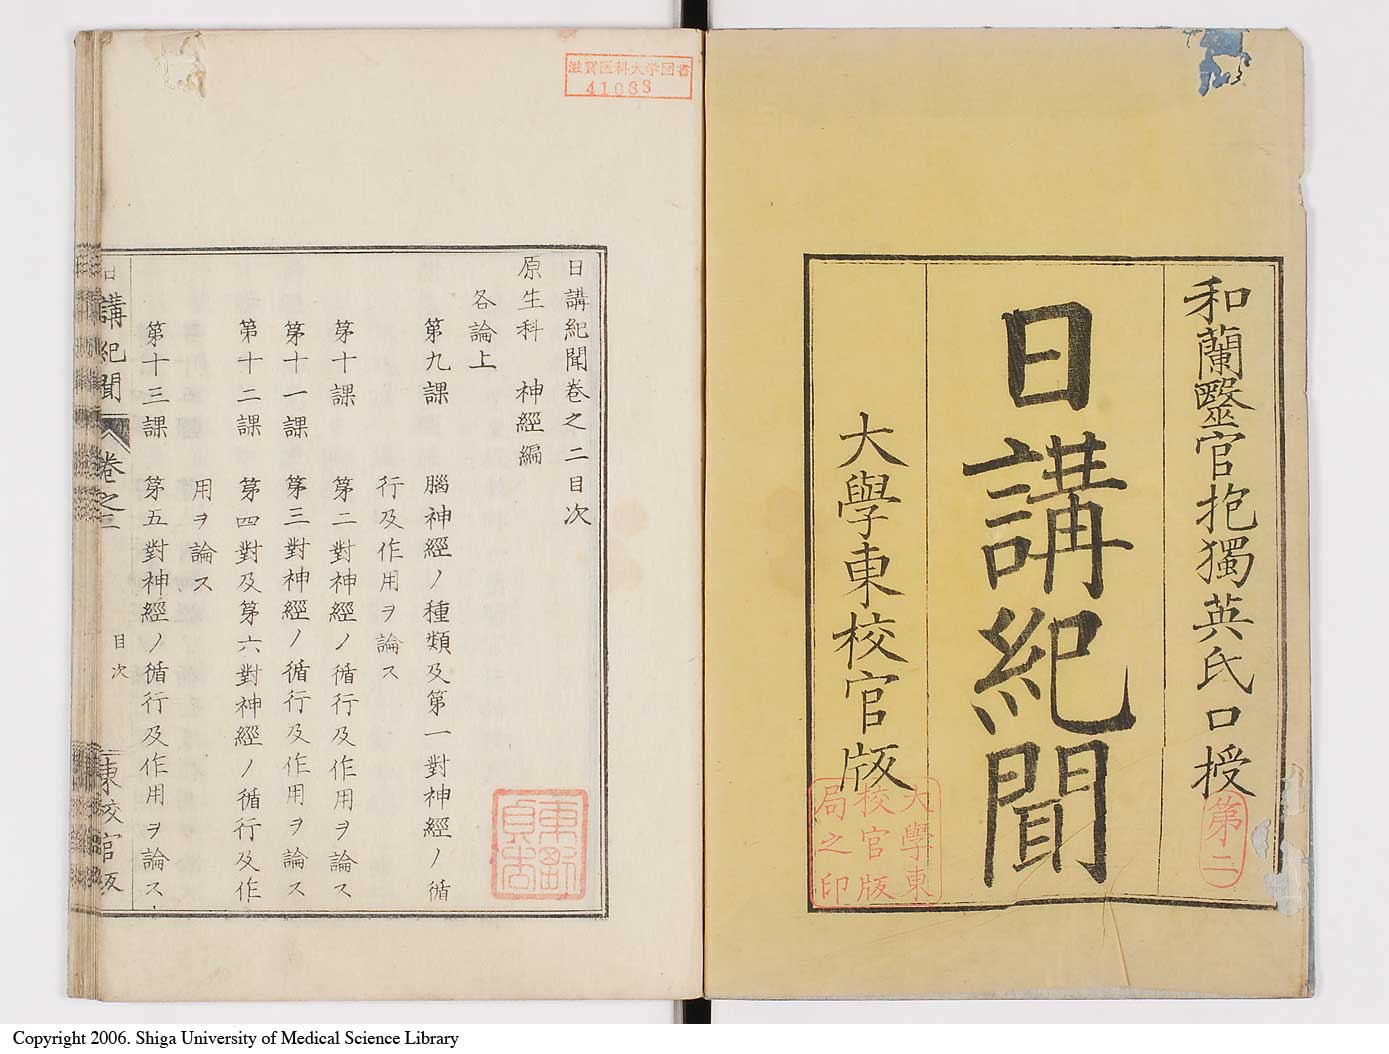 和蘭醫官抱獨英氏口授
第二
日講紀聞
大學東校官版
大學東
校官版
局之印
滋賀医科大学図書
41033
日講紀聞卷之二目次
原生科 神經編
各論上
第九課 腦神經ノ種類及第一對神經ノ循
行及作用ヲ論ス
第十課 第二對神經ノ循行及作用ヲ論ス
第十一課 第三對神經ノ循行及作用ヲ論ス
第十二課 第四對及第六對神經ノ循行及作
用ヲ論ス
第十三課 第五對神經ノ循行及作用ヲ論ス
日講紀聞 卷之二 目次 東校官版
Copyright 2006. Shiga University of Medical Science Library